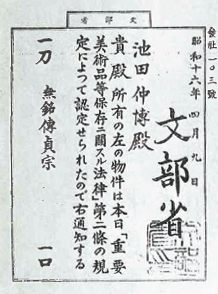 文部省
昭和十六年 四月九日
文部省
池田仲博殿
貴殿所有の左の物件は本日「重要
美術品等保存ニ關スル法律」第二條の規
定によつて認定せられたので右通知する
一刀 無銘傳貞宗 一口